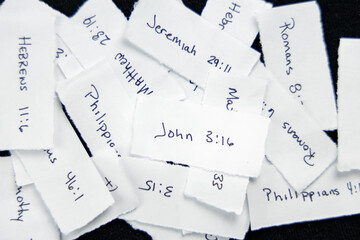 HEBREWS
11:6
28:19
Matthew
Philippi
Jeremiah
29:11
Heb
Romans 8:
Ma
Romans
John 3:16
46:1
3:15
33
Philippians 4:1
mothy